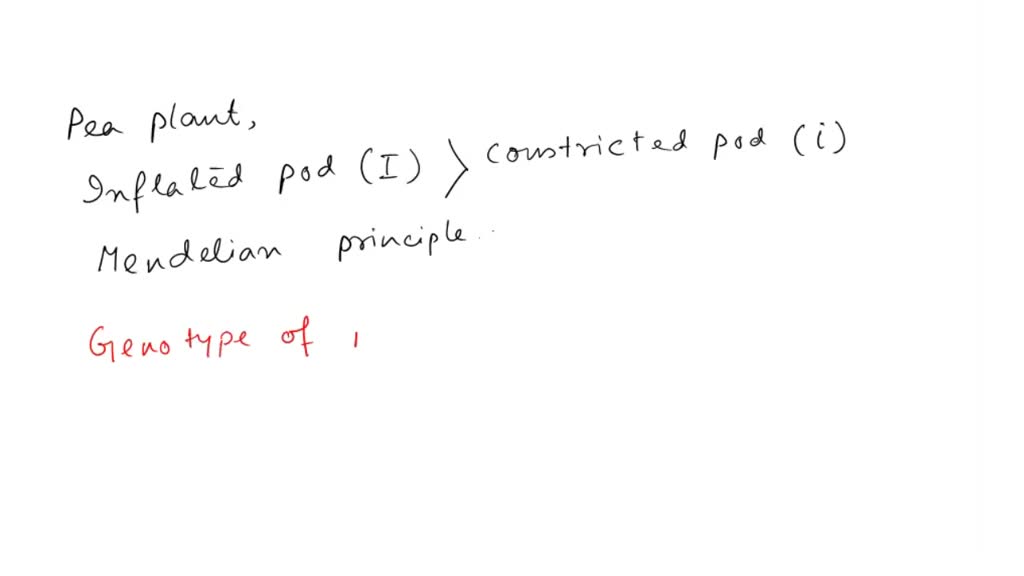 Pea plant,
Inflated pod (I) > constricted pod (i)
Mendelian principle..
Genotype of